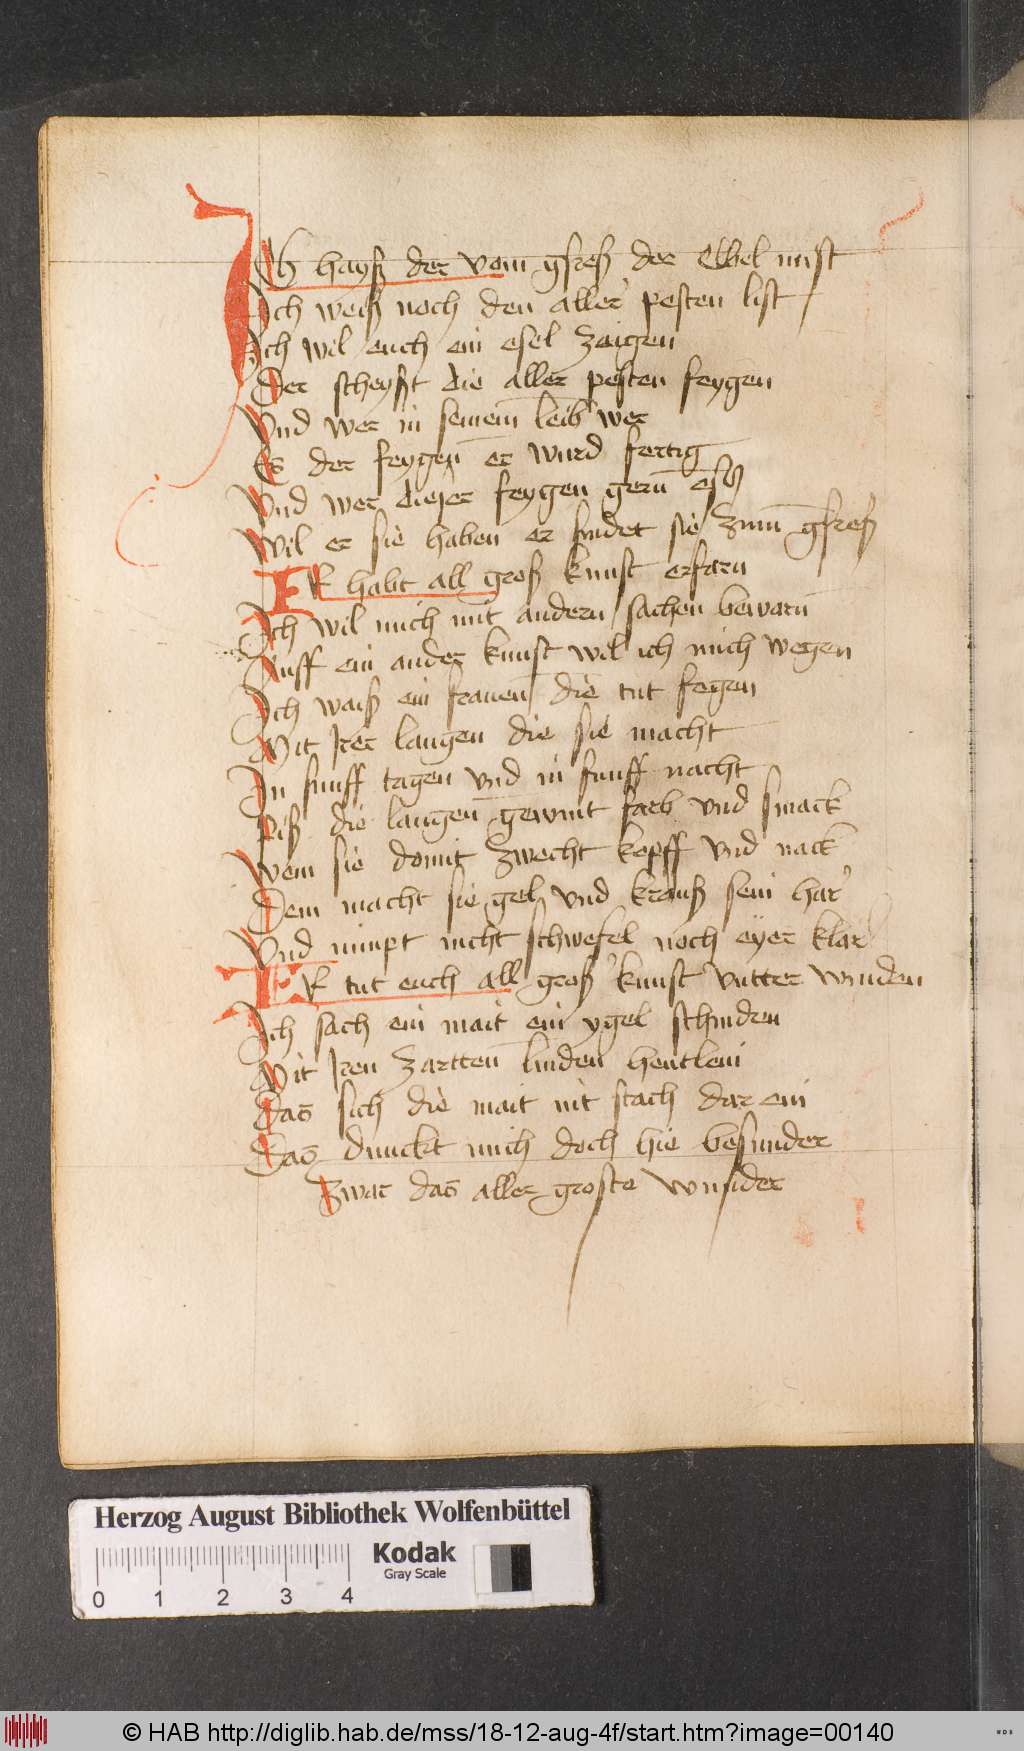 Ich hayß der vom gfreß der Elbel mist
Ich weiß noch den aller pesten list
Ich wil euch ein esel zeigen
Der scheyßt die aller pesten feygen
Vnd wer in seinem leib wer
Es der feygen er wurd fertig
Vnd wer dieser feygen gern eß
Wil er sie haben er findet sie zum gfreß
Ir habt all groß kunst erfarn
Ich wil mich mit andern sachen bewarn
Auff ein ander kunst wil ich mich wegen
Ich waiß ein frauen die tut fegen
Mit Irer laugen die sie macht
In funff tagen vnd in funff nacht
Piß die laugen gewint farb vnd smack
Wem sie domit zwecht kopff vnd nack
Dem macht sie gel vnd krauß sein har
Vnd nimpt nicht schwefel noch eyer klar
Ir tut euch all groß kunst vntter winden
Ich sach ein mait ein ygel schinden
Mit Iren zartten linden hentlein
Das sich die mait nit stach dar ein
Das dunckt mich doch hie besunder
Zwar das aller groste wunder
Herzog August Bibliothek Wolfenbüttel
Kodak
Gray Scale
0 1 2 3 4
© HAB http://diglib.hab.de/mss/18-12-aug-4f/start.htm?image=00140
WDB